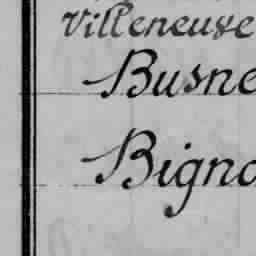 Villeneuve
Busne
Bigno